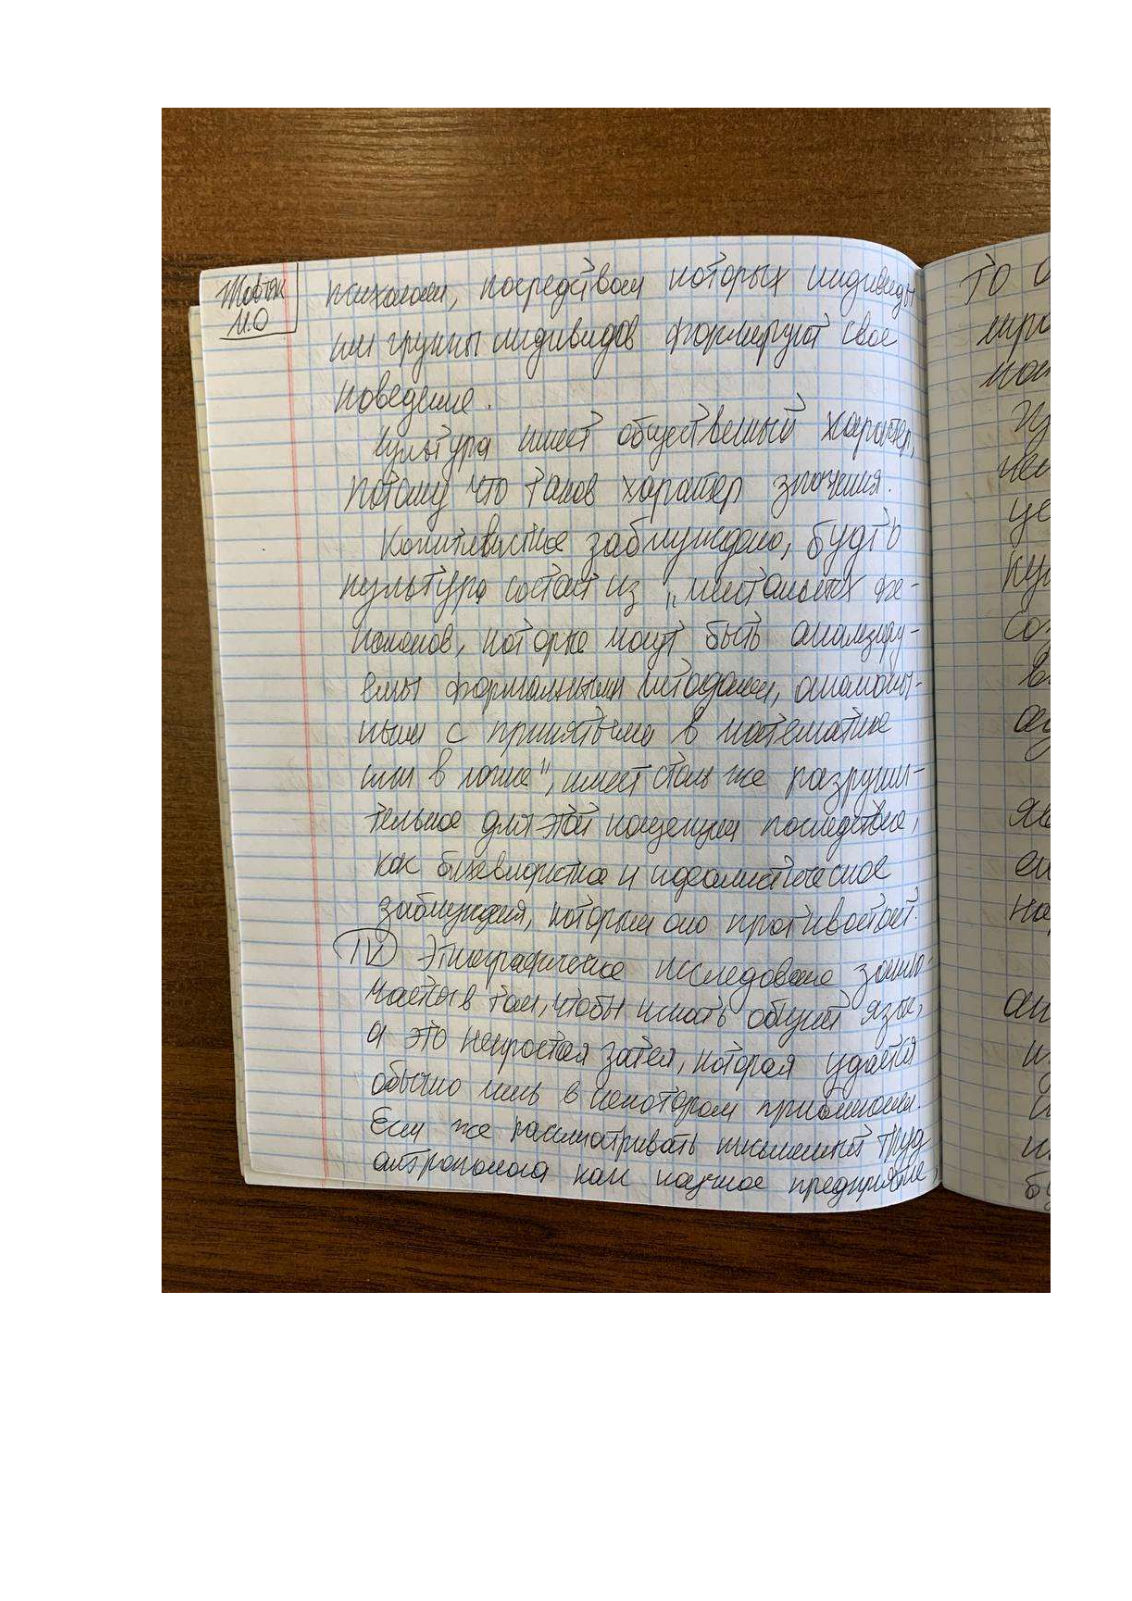 М.О
психологии, посредством которых индивиды
или группы индивидов формируют свое
поведение.
Культура имеет общественный характер,
потому что таков характер значения.
Когнитивистское заблуждение, будто
культура состоит из „ментальных фе-
номенов, которые могут быть анализиру-
емы формальными методами, аналогич-
ными с принятыми в математике
или в логике", имеет столь же разруши-
тельное для этой концепции последствие,
как бихевиористское и идеалистическое
заблуждения, которым оно противостоит.
IV Этнографическое исследование заклю-
чается в том, чтобы искать общий язык,
а это непростая затея, которая удается
обычно лишь в некотором приближении.
Если же рассматривать письменный труд
антрополога как научное предприятие,
то